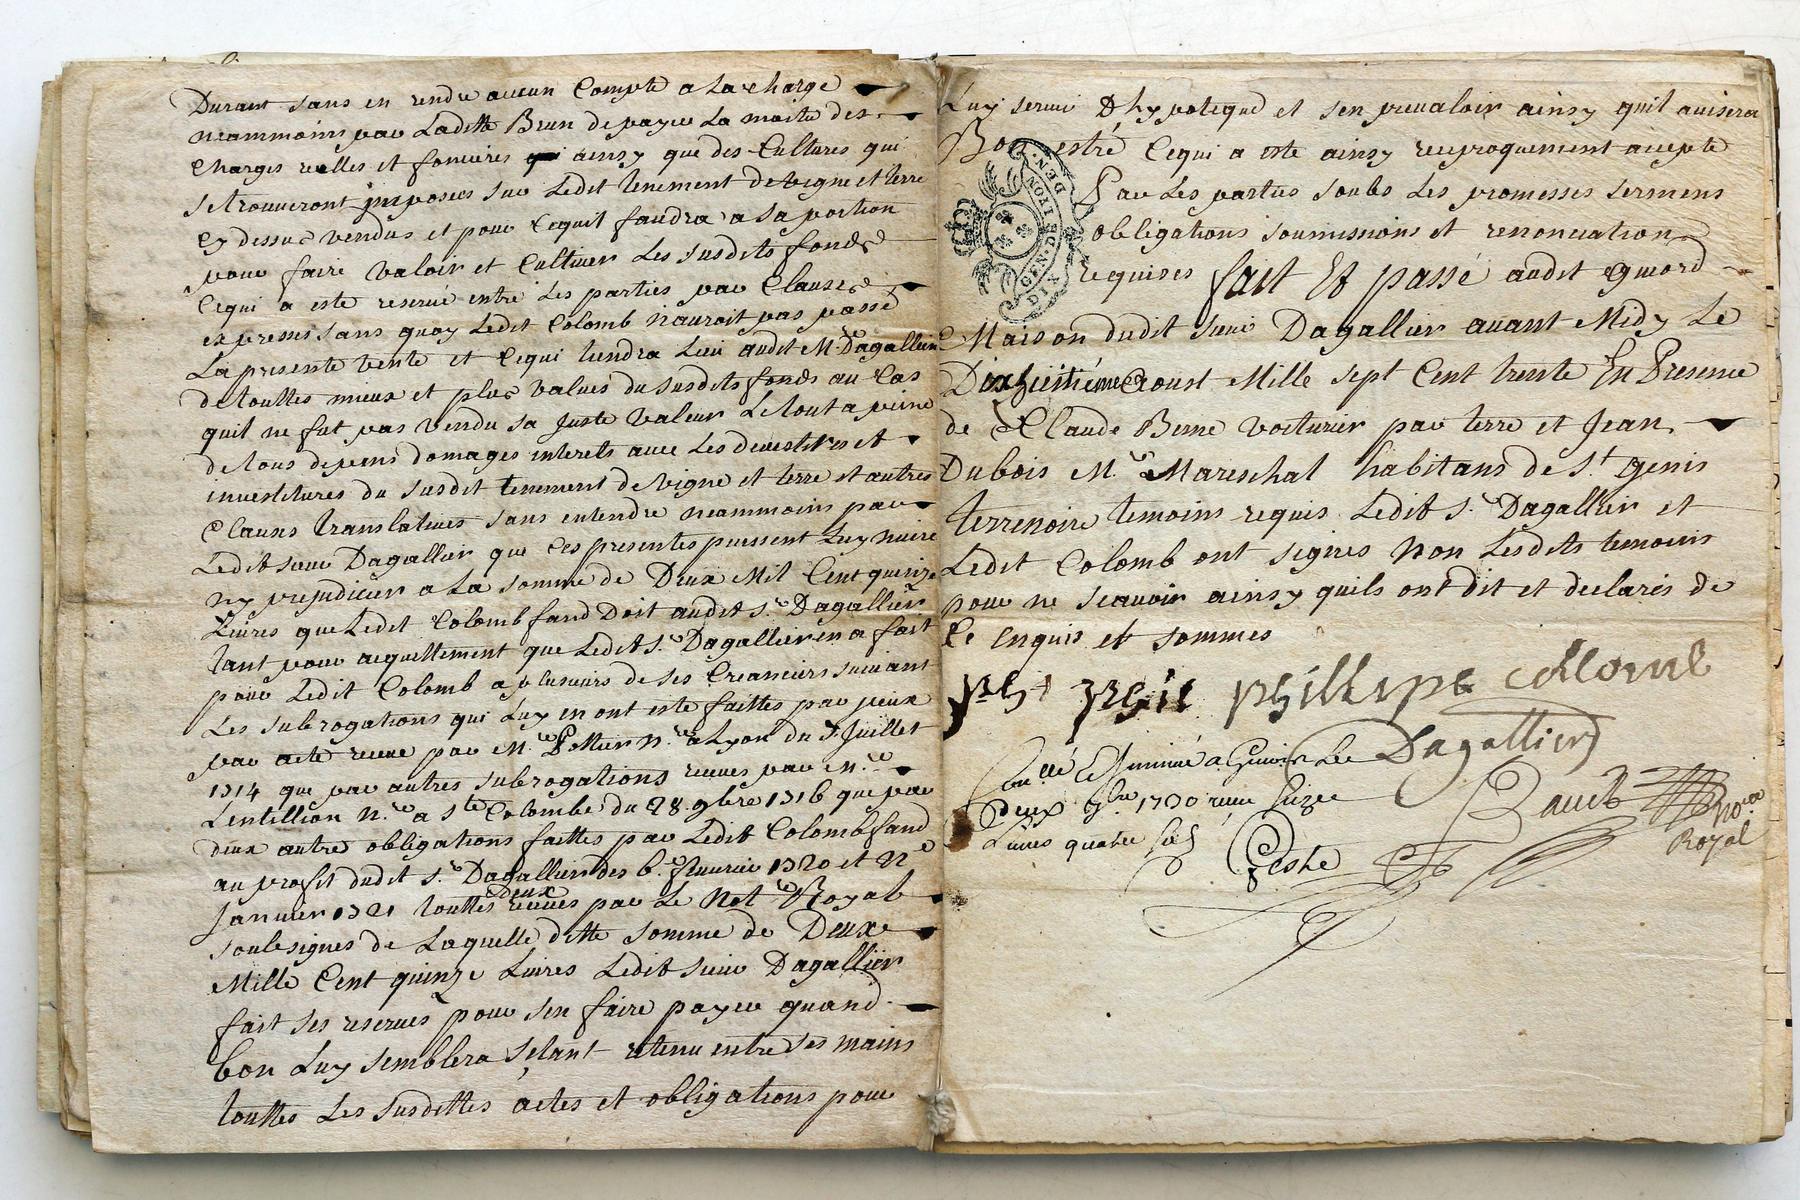 Durant sans en rendre aucun Compte a la charge
neammoins par Laditte Brun de payer La moitié des
Charges reelles et foncieres qui ainsy que des Cultures qui
se trouveront imposees sur Ledit tenement de vigne et terre
cy dessus vendus et pour Cequil faudra a sa portion
pour faire valoir et Cultiver Les susdits fonds
Cequi a esté reservé entre Les parties par Clauses
expresses sans quoy Ledit Colomb n'auroit pas passé
La presente vente et Cequi tiendra Lieu audit Mr. Dagallier
de touttes mieux et plus values du susdits fonds au Cas
quil ne fut pas vendu sa juste valeur Le tout a peine
de tous depens domages interets avec Les devestitures et
investitures du susdit tenement de vigne et terre et autres
Clauses translatives sans entendre neammoins par
Ledit sieur Dagallier que Ces presentes puissent Luy nuire
ny prejudicier a La somme de Deux Mil Cent quinze
Livres que Ledit Colomb fand Doit audit Sr. Dagallier
tant pour acquittement que Ledit Sr. Dagallier en a fait
pour Ledit Colomb a plusieurs de ses Creanciers suivant
Les subrogations qui Luy en ont esté faittes par yceux
par acte receue par Me. Nre. a Lyon du Juillet
1714 que par autres subrogations receues par Me.
Lentillion Nre. a Ste Colombe du 28 9bre 1716 que par
deux autre obligations faittes par Ledit Colomb fand
au profit dudit Sr. Dagallier des 6e. fevrier 1720 et 22e
Janvier 1721 touttes Deux receues par Le Not. Royal
soubsignes de Laquelle ditte somme de Deux
Mille Cent quinze Livres Ledit sieur Dagallier
fait ses reserves pour sen faire payer quand
bon Luy semblera s'etant retenu entre ses mains
touttes Les susdittes actes et obligations pour
Luy servir D'hypoteque et sen prevaloir ainsy quil avisera
Bon estre Cequi a este ainsy reciproquement accepte
Par Les parties soubs Les promesses sermens
obligations soumissions et renonciation
requises fait Et passé audit
Maison dudit sieur Dagallier avant Midy Le
Dixhuitiéme Aoust Mille sept Cent trente En Presence
de Claude Berne voiturier par terre et Jean
Dubois Me. Mareschal habitans de St Genis
terrenoire temoins requis Ledit Sr. Dagallier et
Ledit Colomb ont signes Non Lesdits temoins
pour ne scavoir ainsy quils ont dit et declares de
Ce Enquis et sommes
DIX DEN.
GEN. DE LION
phillipe collomb
Dagallier
deux 9bre 1730
Livres quatre sols
Peshe
nore
Royal